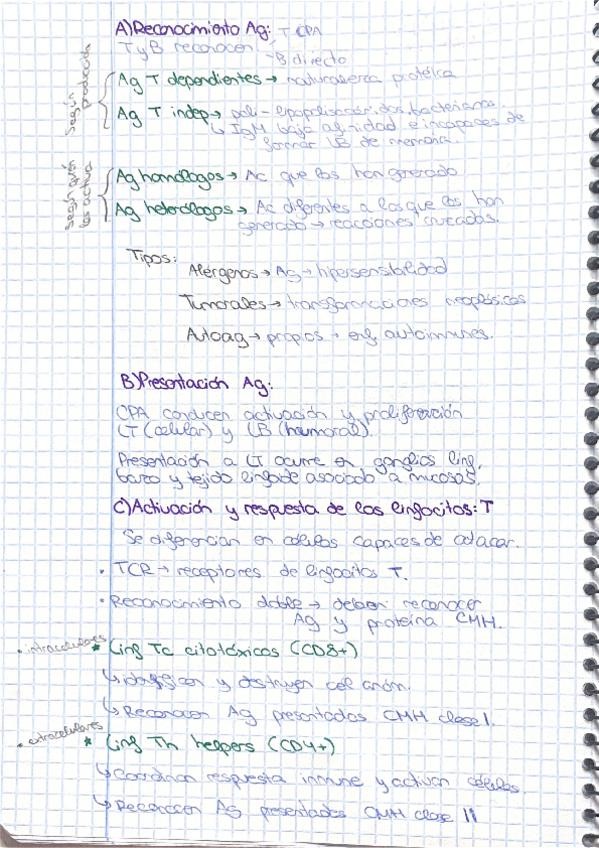 A) Reconocimiento Ag: T CPA
T y B reconocen: - B directo
Según producción
Ag T dependientes → naturaleza proteica
Ag T indep → poli - lipopolisacáridos bacterianos
↳ IgM baja afinidad e incapaces de
formar LB de memoria.
Según quién los activa
Ag homólogos → Ac que los han generado
Ag heterólogos → Ac diferentes a los que los han
generado → reacciones cruzadas.
Tipos:
Alérgenos → Ag → hipersensibilidad
Tumorales → transformaciones neoplásicas
Autoag → propios → enf. autoinmunes.
B) Presentación Ag:
CPA conducen activación y proliferación
LT (celular) y LB (humoral).
Presentación a LT ocurre en ganglios linf,
bazo y tejido linfoide asociado a mucosas.
C) Activación y respuesta de los linfocitos: T
Se diferencian en células capaces de atacar.
• TCR → receptores de linfocitos T.
• Reconocimiento doble → deben reconocer
Ag y proteína CMH.
• intracelulares * Linf Tc citotóxicos (CD8+)
↳ identifican y destruyen cél anóm.
↳ Reconocen Ag presentados CMH clase I.
• extracelulares * Linf Th helpers (CD4+)
↳ Coordinan respuesta inmune y activan células.
↳ Reconocen Ag presentados CMH clase II